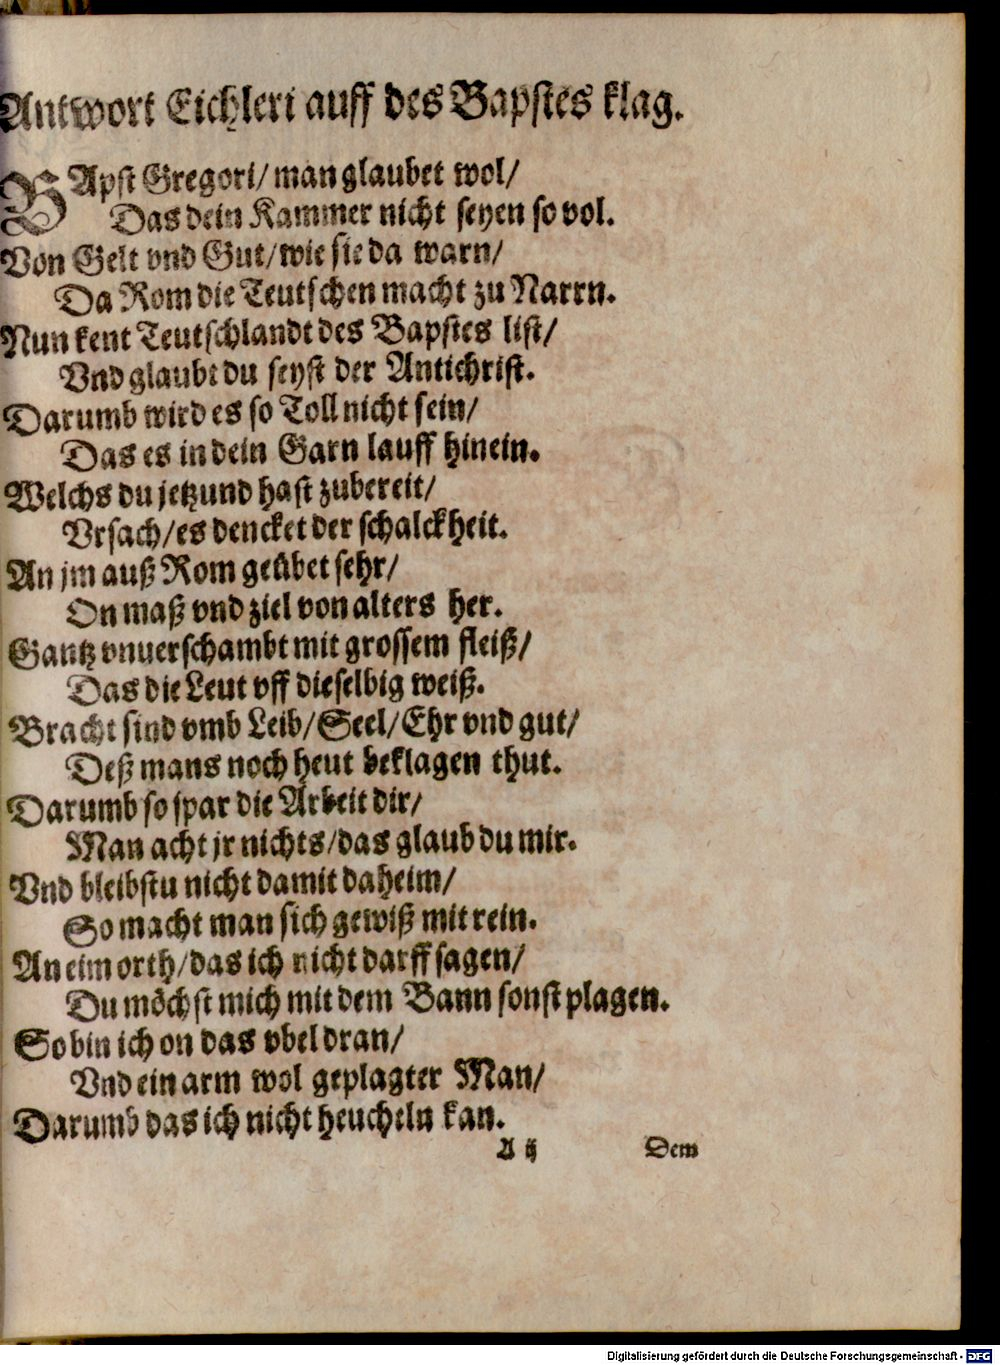 Antwort Eichleri auff des Bapstes klag.
BApst Gregori/ man glaubet wol/
Das dein Kammer nicht seyen so vol.
Von Gelt vnd Gut/ wie sie da warn/
Da Rom die Teutschen macht zu Narrn.
Nun kent Teutschlandt des Bapstes list/
Vnd glaubt du seyst der Antichrist.
Darumb wird es so Toll nicht sein/
Das es in dein Garn lauff hinein.
Welchs du jetzund hast zubereit/
Vrsach/ es dencket der schalckheit.
An jm auß Rom geübet sehr/
On maß vnd ziel von alters her.
Gantz vnuerschambt mit grossem fleiß/
Das die Leut vff dieselbig weiß.
Bracht sind vmb Leib/ Seel/ Ehr vnd gut/
Deß mans noch heut beklagen thut.
Darumb so spar die Arbeit dir/
Man acht jr nichts/ das glaub du mir.
Vnd bleibstu nicht damit daheim/
So macht man sich gewiß mit rein.
An eim orth/ das ich nicht darff sagen/
Du möchst mich mit dem Bann sonst plagen.
So bin ich on das vbel dran/
Vnd ein arm wol geplagter Man/
Darumb das ich nicht heucheln kan.
A ij Dem
Digitalisierung gefördert durch die Deutsche Forschungsgemeinschaft - DFG